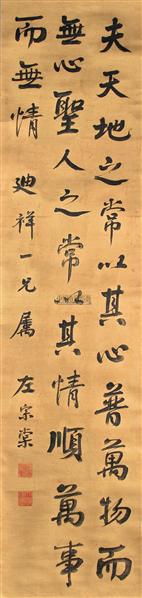 夫天地之常以其心普萬物而
無心聖人之常以其情順萬事
而無情
廸祥一兄屬
左宗棠